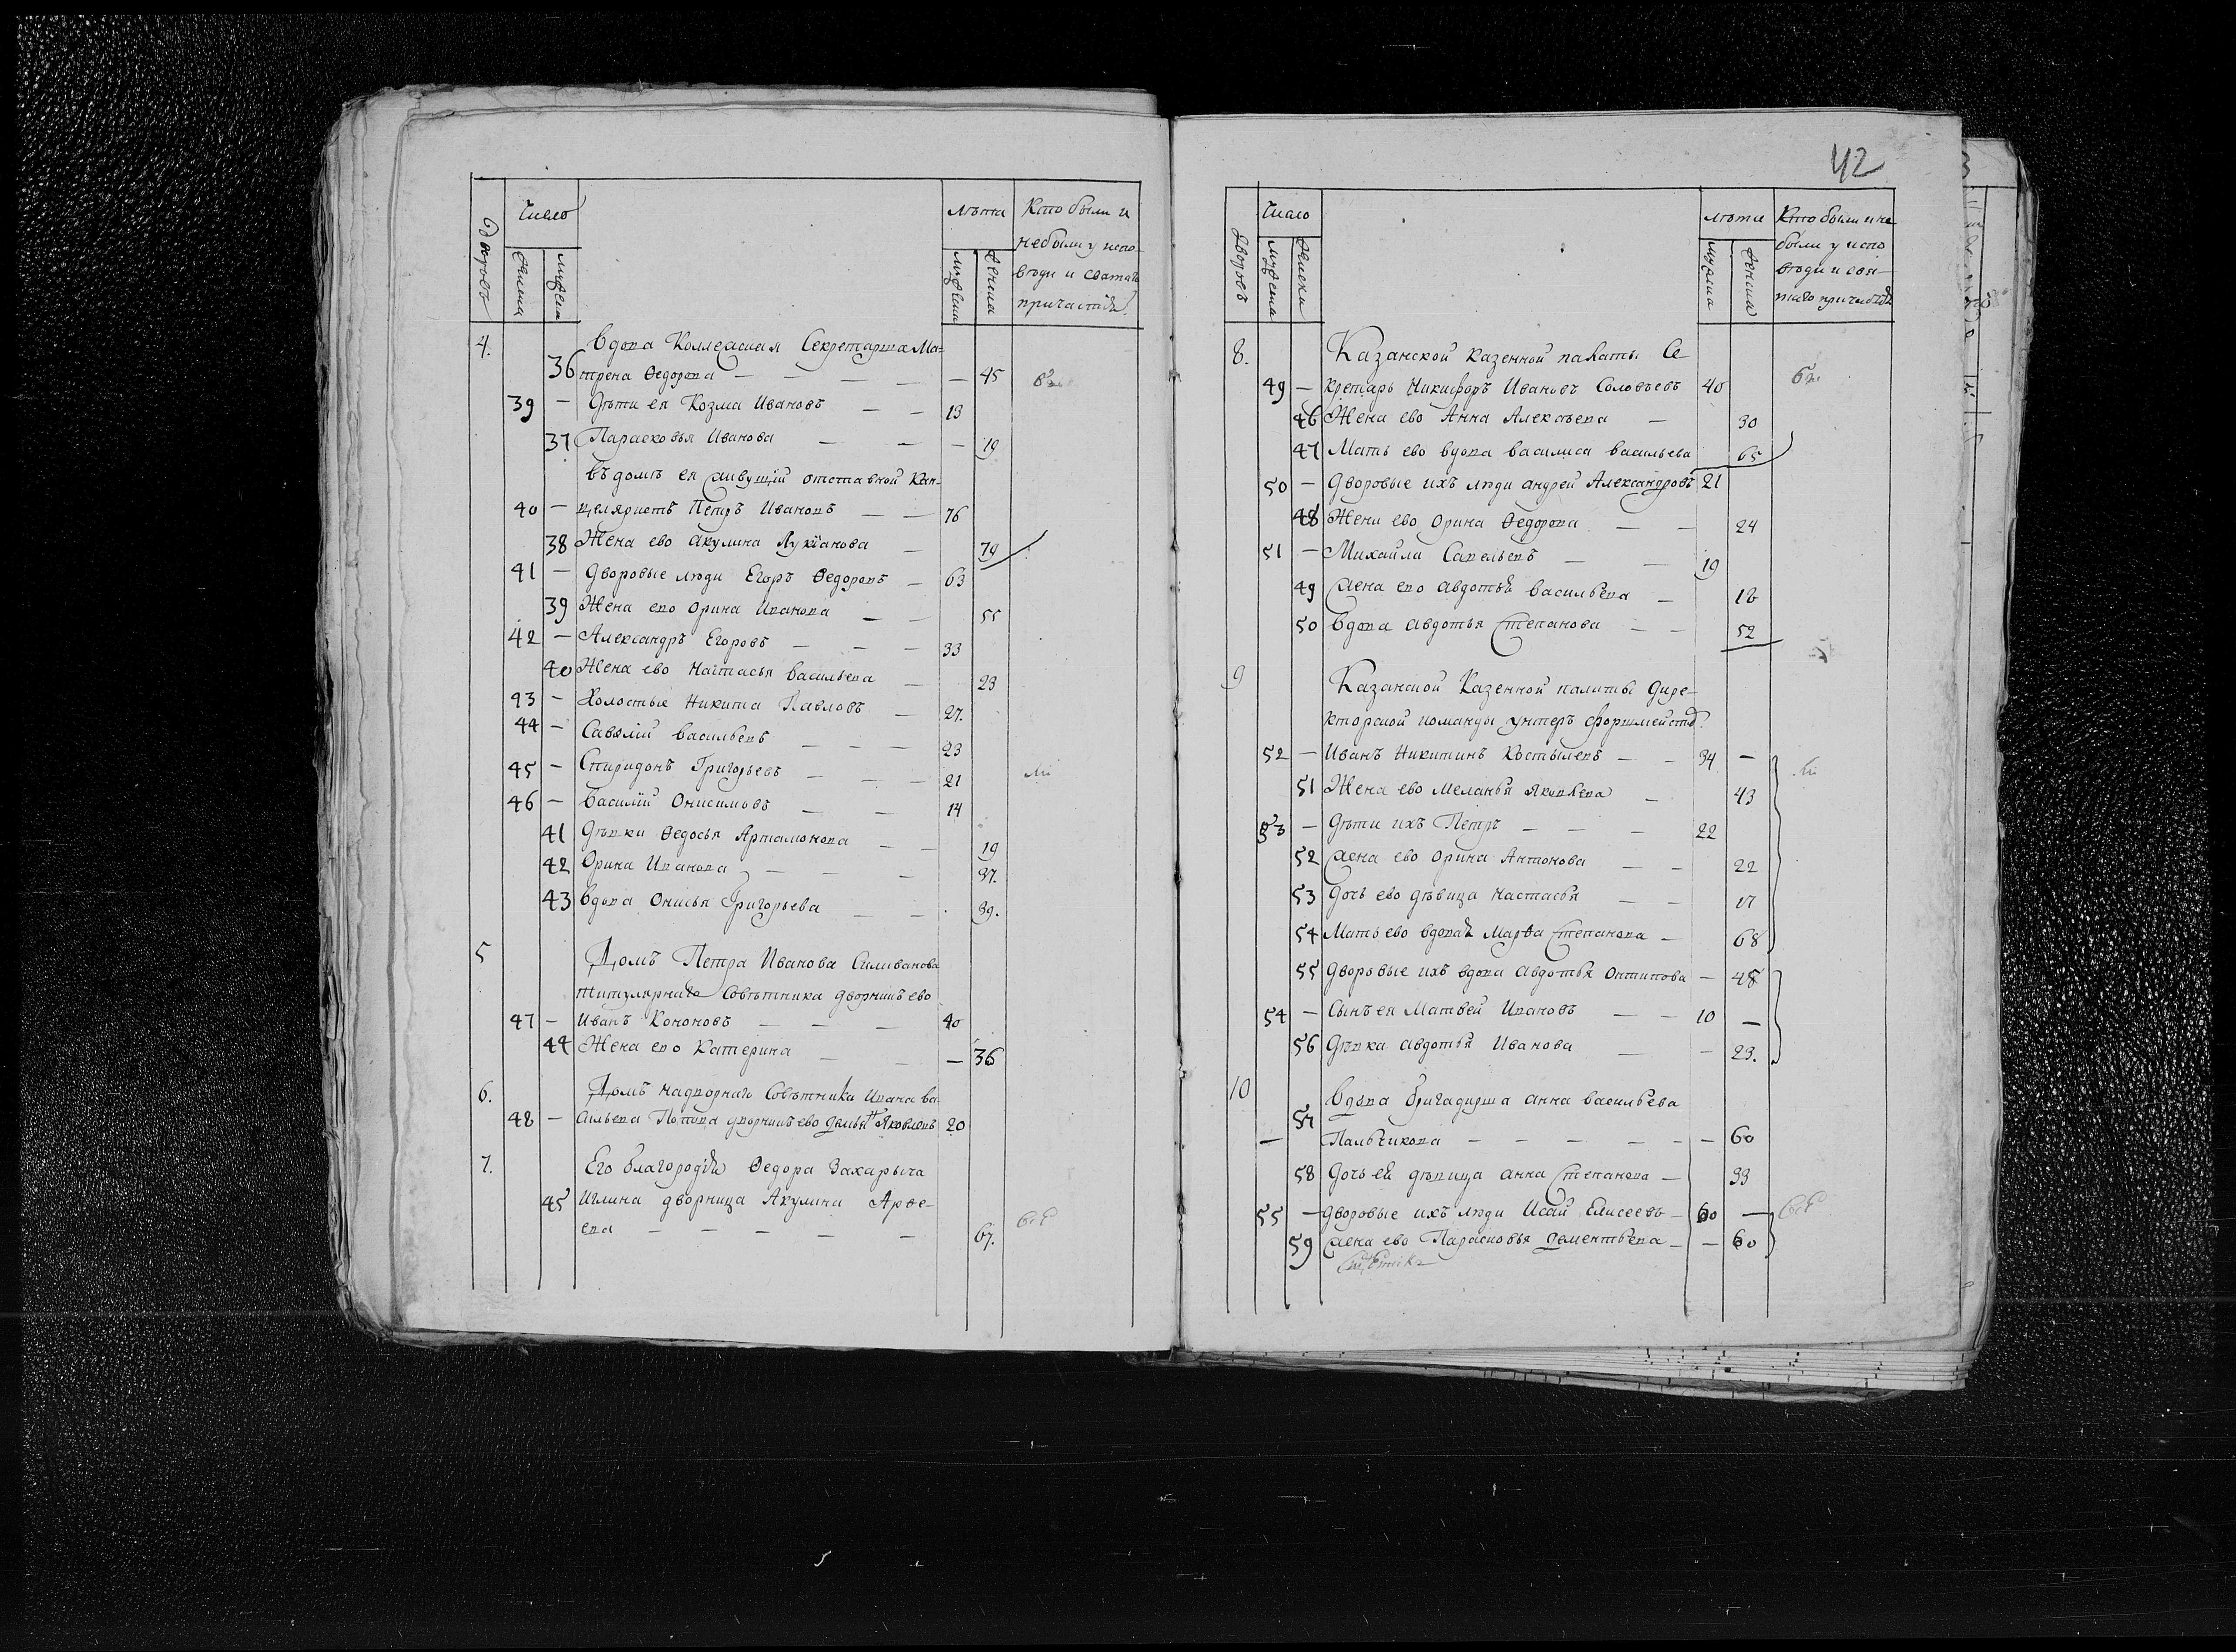 дворовъ
Число
Лѣта
Кто были и
небыли у испо-
вѣди и святаго
причастія.
4.
Вдова Коллежская Секретарша Ма-
36 трена Ѳедорова — — — — — 45
39 — Дѣти ея Козма Ивановъ — — 13
37 Парасковья Иванова — — — 19
Въ домѣ ея живущій отставной Кан-
40 — целяристъ Петръ Ивановъ — — 76
38 Жена ево Акулина Лукіанова — 79
41 — Дворовые люди Егоръ Ѳедоровъ — 63
39 Жена ево Орина Иванова — — 55
42 — Александръ Егоровъ — — — 33
40 Жена ево Настасья Васильева — 23
43 — Холостые Никита Павловъ — 27.
44 — Савелій Васильевъ — — — 23
45 — Спиридонъ Григорьевъ — — — 21
46 — Василій Онисимовъ — — 14
41 Дѣвки Ѳедосья Артамонова — — 19
42 Орина Иванова — — — 37.
43 Вдова Онисья Григорьева — — 39.
5
Домъ Петра Иванова Силиванова
титулярнаго Совѣтника дворникъ ево
47 — Иванъ Кононовъ — — — 40
44 Жена ево Катерина — — — 36
6.
Домъ надворнаго Совѣтника Ивана Ва-
48 — сильева Попова дворникъ ево Яковлевъ 20
7.
Его благородія Ѳедора Захарыча
45 дворница Акулина Арѳе-
ева — — — — — 67.
42
Дворовъ
Число
мужеска
женска
лѣта
Кто были и не
были у испо
вѣди и свя-
таго причастія
8.
Казанской казенной палаты Се-
49 — кретарь Никифоръ Ивановъ Соловьевъ 40
46 Жена ево Анна Алексѣева — 30
47 Мать ево вдова Василиса Васильева 65
50 — Дворовые ихъ люди Андрей Александровъ 21
48 Жена ево Орина Ѳедорова — — 24
51 — Михаила Савельевъ — — 19
49 Жена ево Авдотья Васильева — 18
50 Вдова Авдотья Степанова — — 52
9
Казанской Казенной палаты Дире-
кторской команды унтеръ
52 — Иванъ Никитинъ Костылевъ — — 34 —
51 Жена ево Меланья Яковлева — 43
53 — Дѣти ихъ Петръ — — — 22
52 Жена ево Орина Антонова — — 22
53 Дочь ево дѣвица Настасья — — 17
54 Мать ево вдова Марѳа Степанова — 68
55 Дворовые ихъ вдова Авдотья Онтипова — 48
54 — Сынъ ея Матвей Ивановъ — — 10 —
56 Дѣвка Авдотья Иванова — — 23.
10
Вдова Бригадирша Анна Васильева
57
— Пальчикова — — — — — — 60
58 Дочь ей дѣвица Анна Степанова — 33
55 — Дворовые ихъ люди Исай Елисеевъ — 60 —
59 Жена ево Парасковья Дементьева — — 60